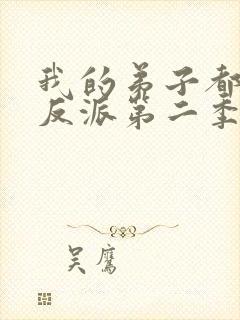 我的弟子都
反派第二季
吴鹰